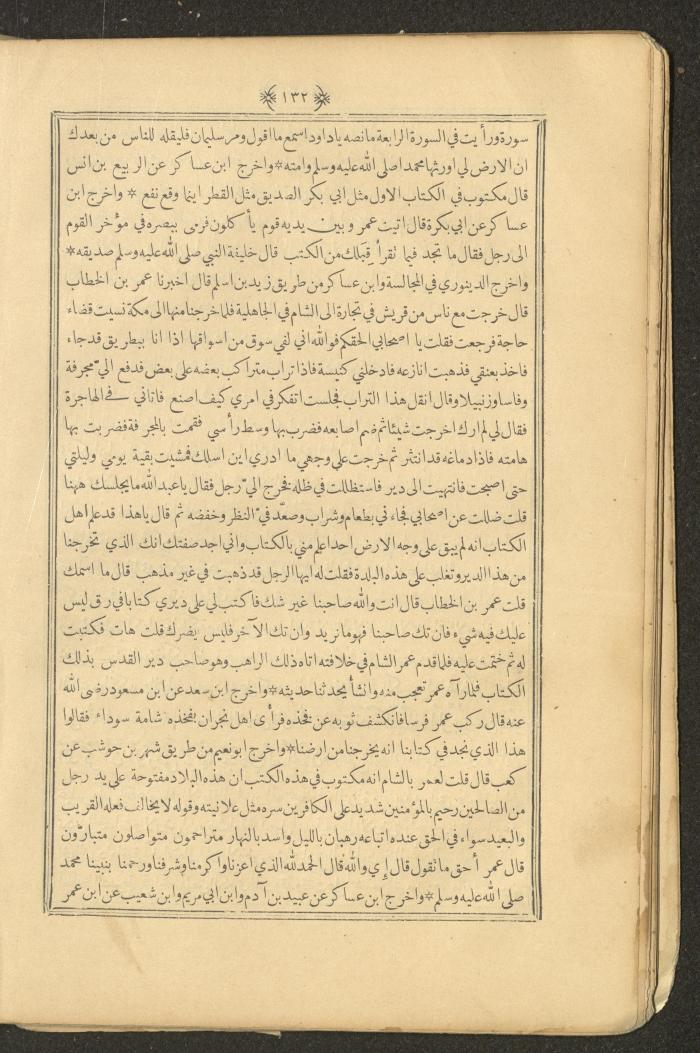 ١٣٢
سورة ورأيت في السورة الرابعة ما نصه ياداود اسمع ما اقول ومر سليمان فليقله للناس من بعدك
ان الارض لي اورثها محمدا صلى الله عليه وسلم وامته * واخرج ابن عساكر عن الربيع بن انس
قال مكتوب في الكتاب الاول مثل ابي بكر الصديق مثل القطر اينما وقع نفع * واخرج ابن
عساكر عن ابي بكرة قال اتيت عمر وبين يديه قوم يأكلون فرمى ببصره في مؤخر القوم
الى رجل فقال ما تجد فيما تقرأ قبلك من الكتب قال خليفة النبي صلى الله عليه وسلم صديقه *
واخرج الدينوري في المجالسة وابن عساكر من طريق زيد بن اسلم قال اخبرنا عمر بن الخطاب
قال خرجت مع ناس من قريش في تجارة الى الشام في الجاهلية فلما خرجنا منها الى مكة نسيت قضاء
حاجة فرجعت فقلت يا اصحابي الحقكم فوالله اني لفي سوق من اسواقها اذا انا ببطريق قد جاء
فاخذ بعنقي فذهبت انازعه فادخلني كنيسة فاذا تراب متراكب بعضه على بعض فدفع الي مجرفة
وفاسا وزنبيلا وقال انقل هذا التراب فجلست اتفكر في امري كيف اصنع فاتاني في الهاجرة
فقال لي لم ارك اخرجت شيئا ثم ضم اصابعه فضرب بها وسط رأسي فقمت بالمجرفة فضربت بها
هامته فاذا دماغه قد انتثر ثم خرجت على وجهي ما ادري اين اسلك فمشيت بقية يومي وليلتي
حتى اصبحت فانتهيت الى دير فاستظللت في ظله فخرج الي رجل فقال ياعبد الله ما يجلسك ههنا
قلت ضللت عن اصحابي فجاءني بطعام وشراب وصعّد فيّ النظر وخفضه ثم قال ياهذا قد علم اهل
الكتاب انه لم يبق على وجه الارض احد اعلم مني بالكتاب واني اجد صفتك انك الذي تخرجنا
من هذا الدير وتغلب على هذه البلدة فقلت له ايها الرجل قد ذهبت في غير مذهب قال ما اسمك
قلت عمر بن الخطاب قال انت والله صاحبنا غير شك فاكتب لي على ديري كتابا في رق ليس
عليك فيه شيء فان تك صاحبنا فهو ما نريد وان تك الآخر فليس يضرك قلت هات فكتبت
له ثم ختمت عليه فلما قدم عمر الشام في خلافته اتاه ذلك الراهب وهو صاحب دير القدس بذلك
الكتاب فلما رآه عمر تعجب منه وانشأ يحدثنا حديثه * واخرج ابن سعد عن ابن مسعود رضى الله
عنه قال ركب عمر فرسا فانكشف ثوبه عن فخذه فرأى اهل نجران بفخذه شامة سوداء فقالوا
هذا الذي نجد في كتابنا انه يخرجنا من ارضنا * واخرج ابو نعيم من طريق شهر بن حوشب عن
كعب قال قلت لعمر بالشام انه مكتوب في هذه الكتب ان هذه البلاد مفتوحة على يد رجل
من الصالحين رحيم بالمؤمنين شديد على الكافرين سره مثل علانيته وقوله لا يخالف فعله القريب
والبعيد سواء في الحق عنده اتباعه رهبان بالليل واسد بالنهار متراحمون متواصلون متبارّون
قال عمر أحق ما تقول قال إي والله قال الحمد لله الذي اعزنا واكرمنا وشرفنا ورحمنا بنبينا محمد
صلى الله عليه وسلم * واخرج ابن عساكر عن عبيد بن آدم وابن ابي مريم وابن شعيب عن ابن عمر